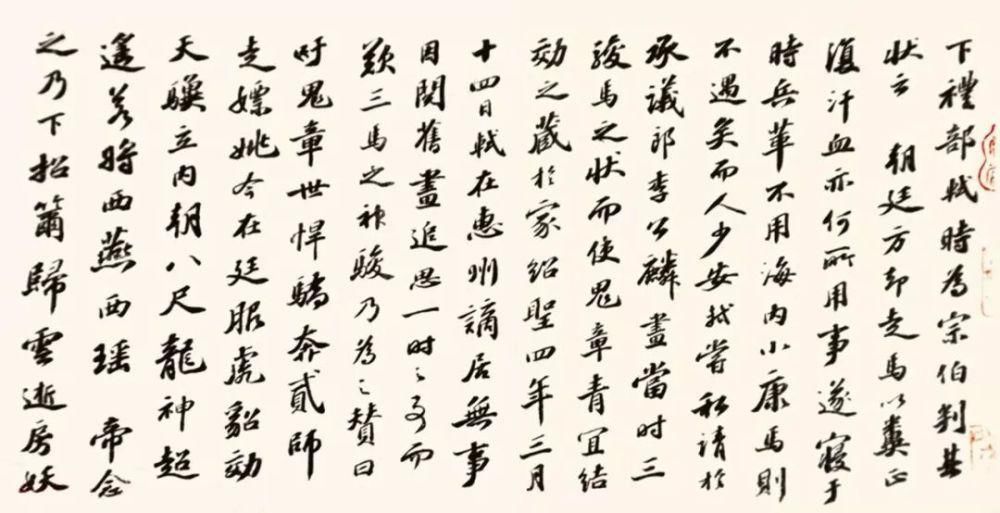 下禮部軾時為宗伯判其
狀云 朝廷方却走馬以糞正
復汗血亦何所用事遂寢于
時兵革不用海内小康馬則
不遇矣而人少安軾嘗私請於
承議郎李公麟畫當时三
駿馬之状而使鬼章青冝結
効之藏於家紹聖四年三月
十四日軾在惠州謫居無事
因閲舊畫追思一时之事而
歎三馬之神駿乃為之贊曰
吁鬼章世悍驕奔貳師
走嫖姚今在廷服虎貂効
天驥立内朝八尺龍神超
遙若將西燕西瑶 帝念
之乃下招籋歸雲逝房妖